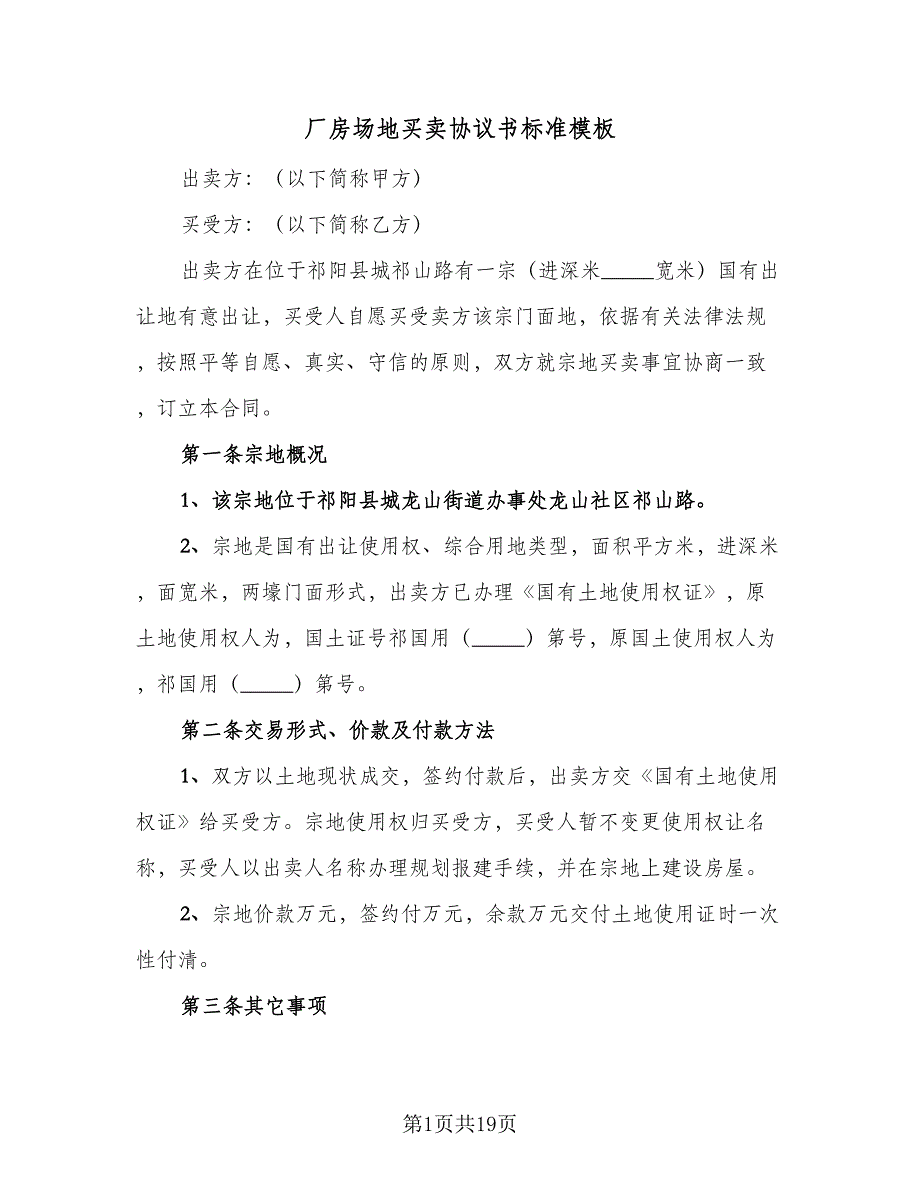 厂房场地买卖协议书标准模板
出卖方：（以下简称甲方）
买受方：（以下简称乙方）
出卖方在位于祁阳县城祁山路有一宗（进深米_____宽米）国有出
让地有意出让，买受人自愿买受卖方该宗门面地，依据有关法律法规
，按照平等自愿、真实、守信的原则，双方就宗地买卖事宜协商一致
，订立本合同。
第一条宗地概况
1、该宗地位于祁阳县城龙山街道办事处龙山社区祁山路。
2、宗地是国有出让使用权、综合用地类型，面积平方米，进深米
，面宽米，两壕门面形式，出卖方已办理《国有土地使用权证》，原
土地使用权人为，国土证号祁国用（_____）第号，原国土使用权人为
，祁国用（_____）第号。
第二条交易形式、价款及付款方法
1、双方以土地现状成交，签约付款后，出卖方交《国有土地使用
权证》给买受方。宗地使用权归买受方，买受人暂不变更使用权让名
称，买受人以出卖人名称办理规划报建手续，并在宗地上建设房屋。
2、宗地价款万元，签约付万元，余款万元交付土地使用证时一次
性付清。
第三条其它事项
第1页共19页